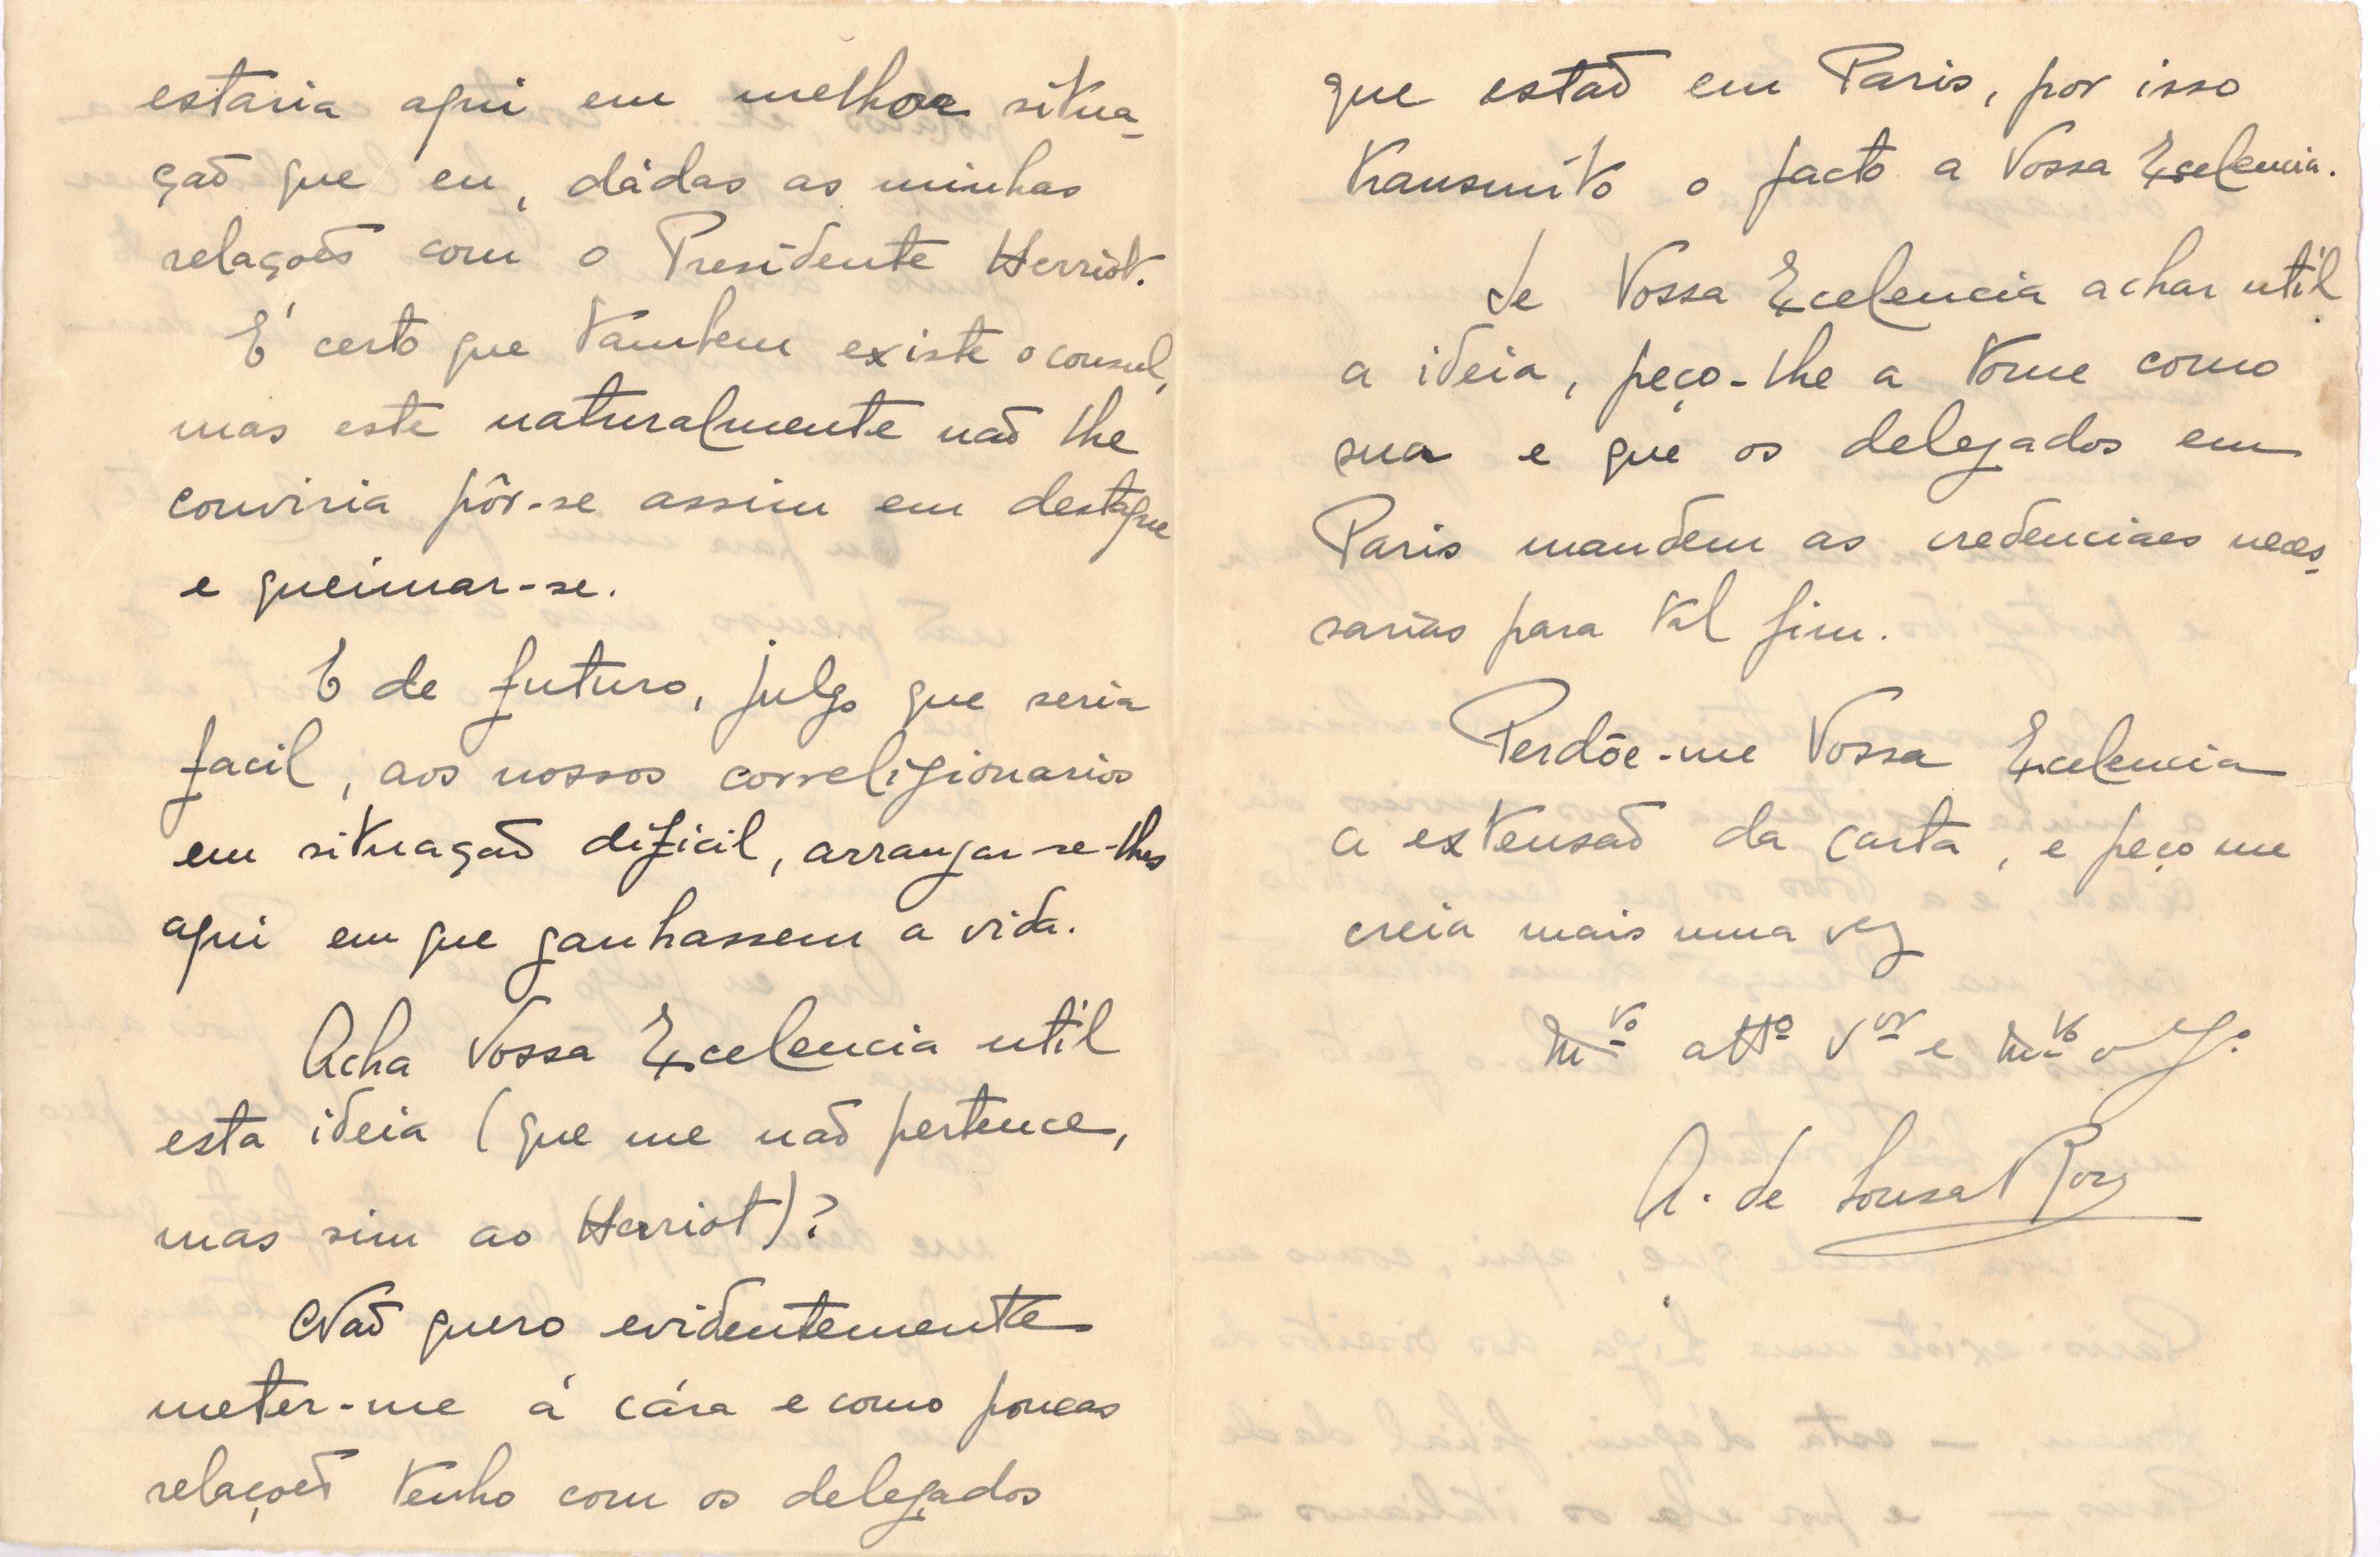 estaria aqui em melhor situa-
ção que eu, dádas as minhas
relações com o Presidente Herriot.
É certo que tambem existe o consul,
mas este naturalmente não lhe
conviria pôr-se assim em destaque
e queimar-se.
E de futuro, julgo que seria
facil, aos nossos correligionarios
em situação dificil, arranjar-se-lhes
aqui em que ganhassem a vida.
Acha Vossa Excelencia util
esta ideia (que me não pertence,
mas sim ao Herriot)?
Não quero evidentemente
meter-me á cára e como poucas
relações tenho com os delegados
que estão em Paris, por isso
transmito o facto a Vossa Excelencia.
Se Vossa Excelencia achar util
a ideia, peço-lhe a tome como
sua e que os delegados em
Paris mandem as credenciaes neces-
sarias para tal fim.
Perdõe-me Vossa Excelencia
a extensão da carta, e peço me
creia mais uma vez
M.to att.o V.or e m.to
A. de Sousa